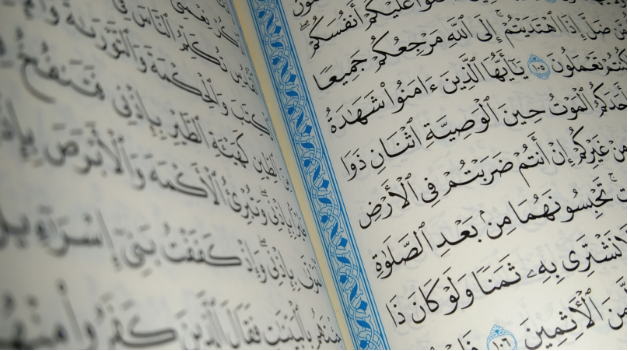 عَلَيْكُمْ أَنفُسَكُمْ
ضَلَّ إِذَا ٱهْتَدَيْتُمْ إِلَى ٱللَّهِ مَرْجِعُكُمْ جَمِيعًا
كُنتُمْ تَعْمَلُونَ ١٠٥ يَٰٓأَيُّهَا ٱلَّذِينَ ءَامَنُوا۟ شَهَٰدَةُ
أَحَدَكُمُ ٱلْمَوْتُ حِينَ ٱلْوَصِيَّةِ ٱثْنَانِ ذَوَا
مِنْ غَيْرِكُمْ إِنْ أَنتُمْ ضَرَبْتُمْ فِى ٱلْأَرْضِ
تَحْبِسُونَهُمَا مِنۢ بَعْدِ ٱلصَّلَوٰةِ
لَا نَشْتَرِى بِهِۦ ثَمَنًا وَلَوْ كَانَ ذَا
ٱلْأَثِمِينَ ١٠٦
تُكَلِّمُ ٱلنَّاسَ فِى
وَٱلْحِكْمَةَ وَٱلتَّوْرَىٰةَ
ٱلطِّينِ كَهَيْـَٔةِ ٱلطَّيْرِ بِإِذْنِى فَتَنفُخُ
وَتُبْرِئُ ٱلْأَكْمَهَ وَٱلْأَبْرَصَ
بِإِذْنِى وَإِذْ كَفَفْتُ بَنِىٓ
فَقَالَ ٱلَّذِينَ كَفَرُوا۟ مِنْهُمْ